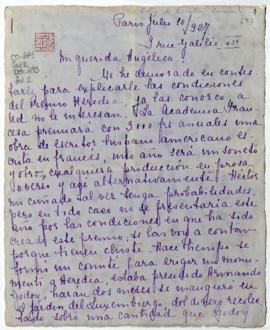 Paris Julio 10/927
1 rue Galilée
Mi querida Angélica
No he demorado en contes
tarle para explicarle las condiciones
del Premio Heredia. ya las conozco, a
Ud no le interesan. La Academia Fran
cesa premiará con 3.000 frs anuales una
obra de escritor hispano americano es
crita en francés, un año será un soneto
y otro, cualquiera producción en prosa
o verso y así alternativamente. Héctor
mi cuñado tal vez tenga probabilidades
pero en todo caso no se presentaría este
año por las condiciones en que ha sido
creado este premio. se las voy a contar
porque tienen chiste. Hace tiempo se
formó un comité para erigir un monu-
mento a Heredia, estaba presidido Armando
Godoy, harán dos meses se inauguró en
el Jardin del Luxemburgo, del dinero recolec
tado sobró una cantidad que Godoy